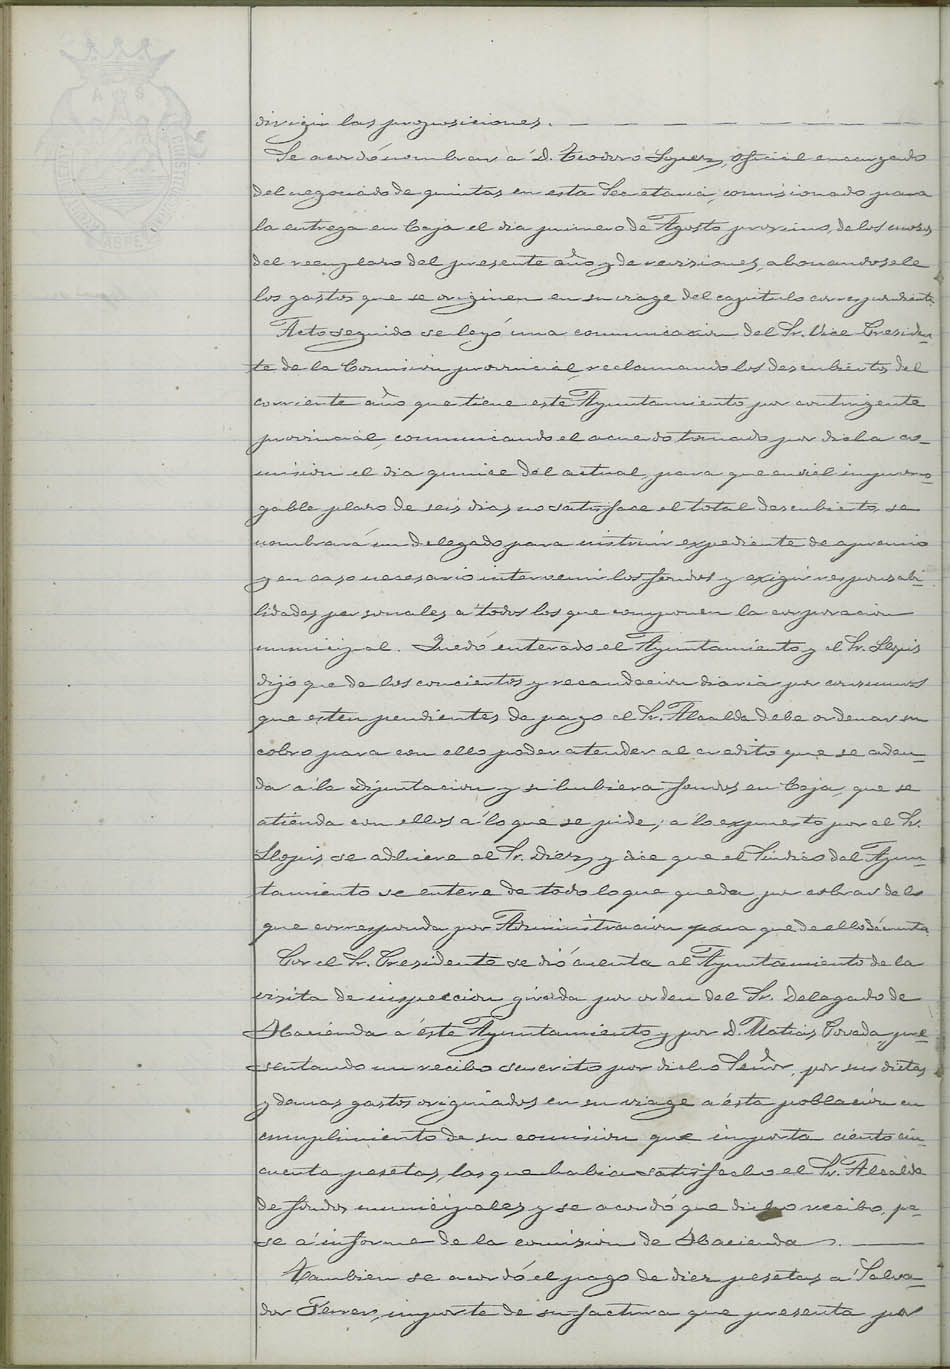 dirigir las proposiciones.
Se acordó nombrar a D. Teodoro Lopez, oficial encargado
del negociado de quintas en esta Secretaria, comisionado para
la entrega en Caja el dia primero de Agosto proximo, de los mozos
del reemplazo del presente año y de revisiones, abonandosele
los gastos que se originen en su viage del capitulo correspondiente.
Acto seguido se leyó una comunicacion del Sr. Vice-Presiden-
te de la Comision provincial, reclamando los descubiertos del
corriente año que tiene este Ayuntamiento por contingente
provincial, comunicando el acuerdo tomado por dicha co-
mision el dia quince del actual, para que en el improrro-
gable plazo de seis dias no satisface el total descubierto, se
nombrará un Delegado para instruir expediente de apremio
y en caso necesario intervenir los fondos y exigir responsabi-
lidades personales a todos los que componen la corporacion
municipal. Quedó enterado el Ayuntamiento y el Sr. Llopis
dijo que de los conciertos y recaudacion diaria por consumos
que esten pendientes de pago el Sr. Alcalde debe ordenar su
cobro para con ello poder atender al credito que se aden-
da á la Diputacion y si hubiera fondos en Caja, que se
atienda con ellos a lo que se pide; a lo expuesto por el Sr.
Llopis, se adhiere el Sr. Diez, y dice que el Sindico del Ayun-
tamiento se entere de todo lo que queda por cobrar de lo
que corresponda por Administracion para que de ello dé cuenta.
Por el Sr. Presidente se dió cuenta al Ayuntamiento de la
visita de inspeccion girada por orden del Sr. Delegado de
Hacienda a éste Ayuntamiento y por D. Matias Poveda, pre-
sentando un recibo suscrito por dicho Señor, por sus dietas
y demas gastos originados en su viage a ésta poblacion en
cumplimiento de su comision que importa ciento cin-
cuenta pesetas, las que habia satisfecho el Sr. Alcalde
de fondos municipales y se acordó que dicho recibo, pa-
se a informe de la comision de Hacienda.
Tambien se acordó el pago de diez pesetas a Salva-
dor Ferrer, importe de su factura que presenta por